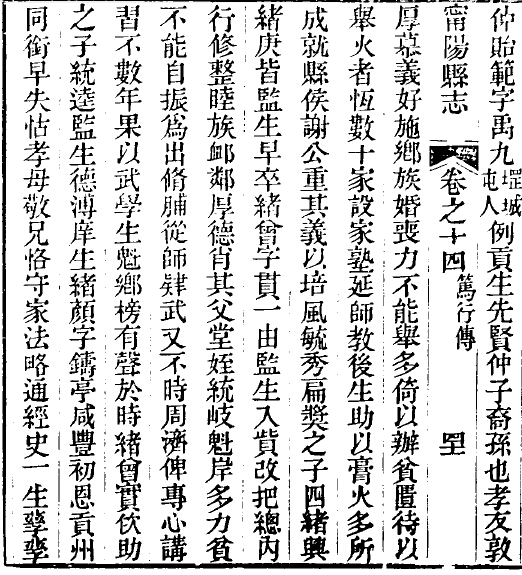 仲貽範字禹九堽城屯人例貢生先賢仲子裔孫也孝友敦
甯陽縣志
卷之十四 篤行傳
罕
厚慕義好施鄉族婚喪力不能舉多倚以辦貧匱待以
舉火者恆數十家設家塾延師教後生助以膏火多所
成就縣侯謝公重其義以培風毓秀扁獎之子四緒興
緒庚皆監生早卒緒曾字貫一由監生入貲改把總內
行修整睦族卹鄰厚德肖其父堂姪統岐魁岸多力貧
不能自振爲出脩脯從師肄武又不時周濟俾專心講
習不數年果以武學生魁鄉榜有聲於時緒曾實佽助
之子統逵監生德溥庠生緒顏字鑄亭咸豐初恩貢州
同銜早失怙孝母敬兄恪守家法略通經史一生孳孳